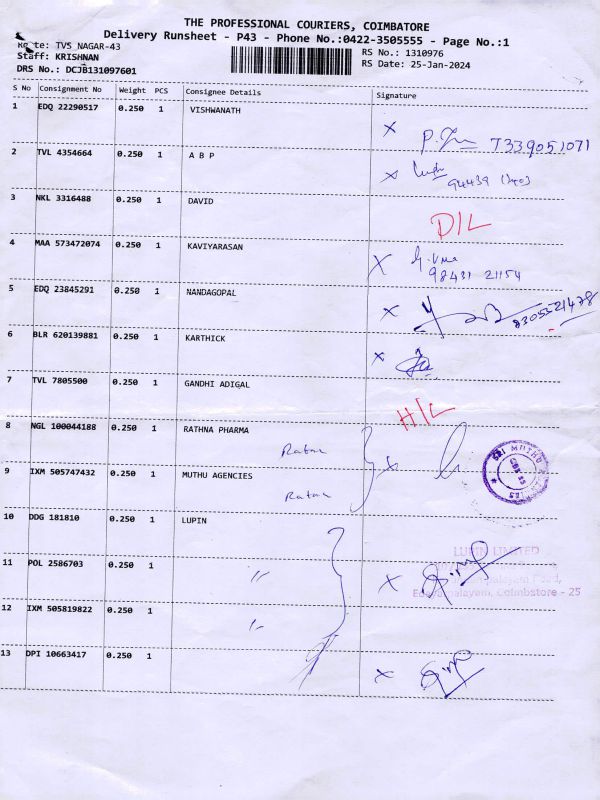 THE PROFESSIONAL COURIERS, COIMBATORE
Delivery Runsheet - P43 - Phone No.:0422-3505555 - Page No.:1
Route: TVS NAGAR-43
RS No.: 1310976
Staff: KRISHNAN
RS Date: 25-Jan-2024
DRS No.: DCJB131097601
S No Consignment No Weight PCS Consignee Details Signature
1 EDQ 22290517 0.250 1 VISHWANATH
T339051071
2 TVL 4354664 0.250 1 A B P
94439
3 NKL 3316488 0.250 1 DAVID
D/L
4 MAA 573472074 0.250 1 KAVIYARASAN
98431 21154
5 EDQ 23845291 0.250 1 NANDAGOPAL
8305521478
6 BLR 620139881 0.250 1 KARTHICK
7 TVL 7805500 0.250 1 GANDHI ADIGAL
H/L
8 NGL 100044188 0.250 1 RATHNA PHARMA
9 IXM 505747432 0.250 1 MUTHU AGENCIES
SRI MUTHU
10 DDG 181810 0.250 1 LUPIN
LUPIN LIMITED
11 POL 2586703 0.250 1 "
Edayarpalayam, Coimbatore - 25
12 IXM 505819822 0.250 1 "
13 DPI 10663417 0.250 1